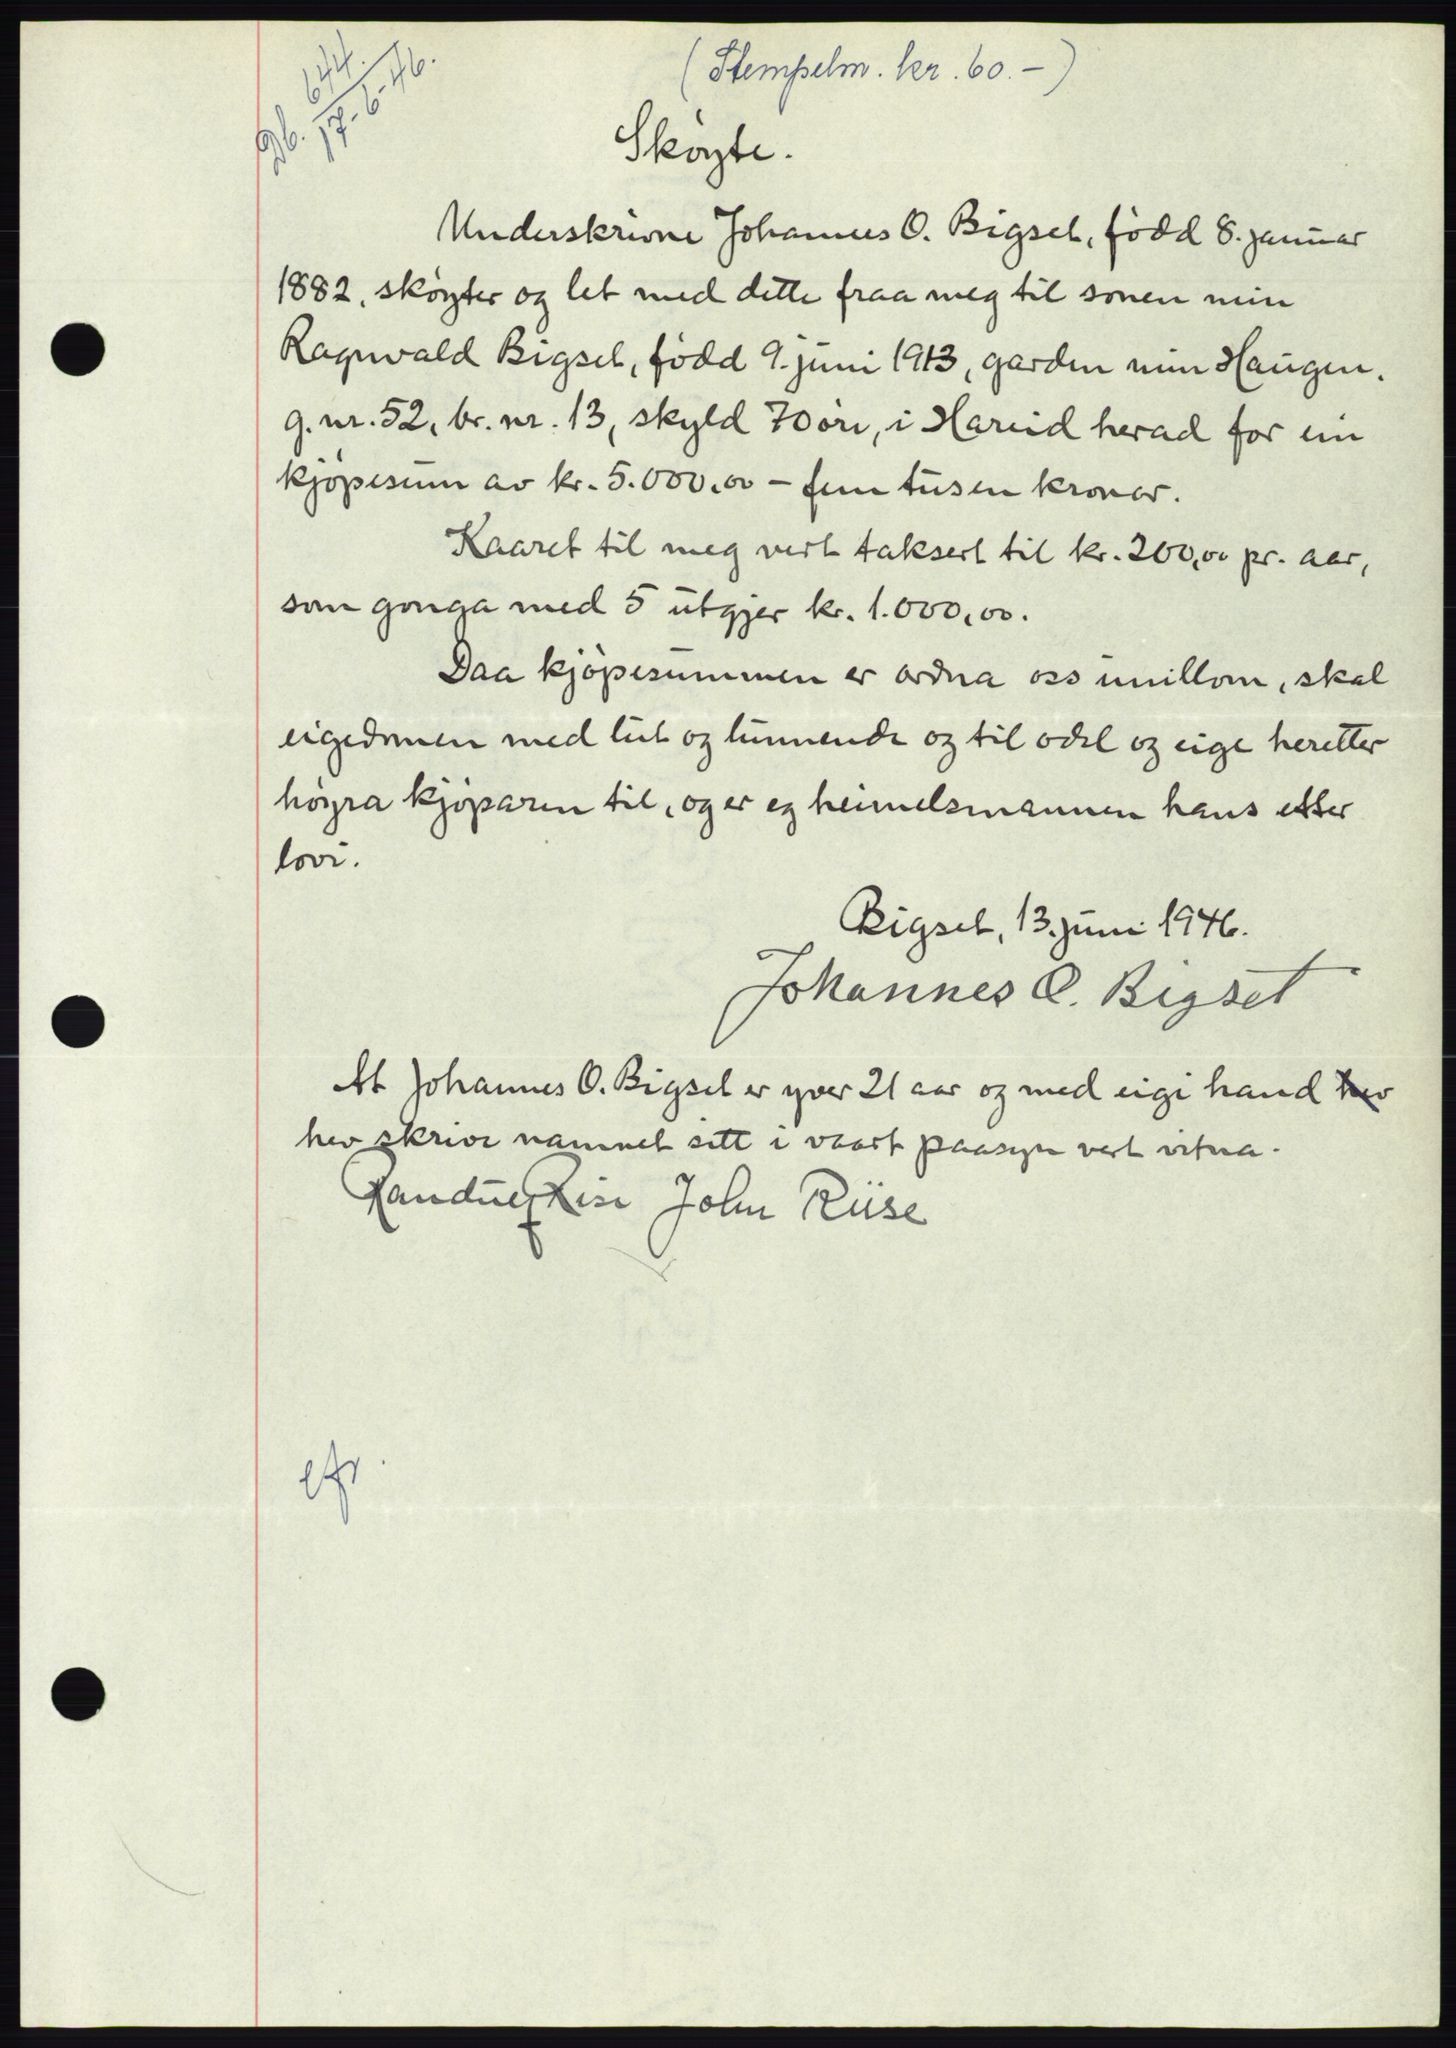 Db. 644. / 17-6-46.
(Stempelm. kr. 60.-)
Skøyte.
Underskrivne Johannes O. Bigset, fødd 8. januar
1882, skøyter og let med dette fraa meg til sonen min
Ragnvald Bigset, fødd 9. juni 1913, garden min Haugen.
g. nr. 52, br. nr. 13, skyld 70 øre, i Hareid herad for ein
kjøpesum av kr. 5.000,00 - fem tusen kroner.
Kaaret til meg vert taksert til kr. 200,00 pr. aar,
som gonga med 5 utgjer kr. 1.000,00.
Daa kjøpesummen er ordna oss imillom, skal
eigedomen med lut og lunnende og til odel og eige heretter
høyra kjøparen til, og er eg heimelsmannen hans etter
lovi.
Bigset, 13. juni 1946.
Johannes O. Bigset
At Johannes O. Bigset er yver 21 aar og med eigi hand hev
hev skrive namnet sitt i vaart paasyn vert vitna.
Randue Rise John Riise